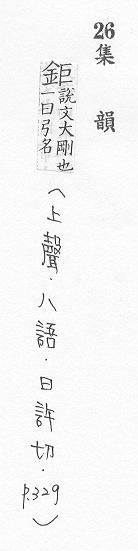 26集韻
鉅說文大剛也
一曰弓名
(上聲.八語.日許切.
p.329)